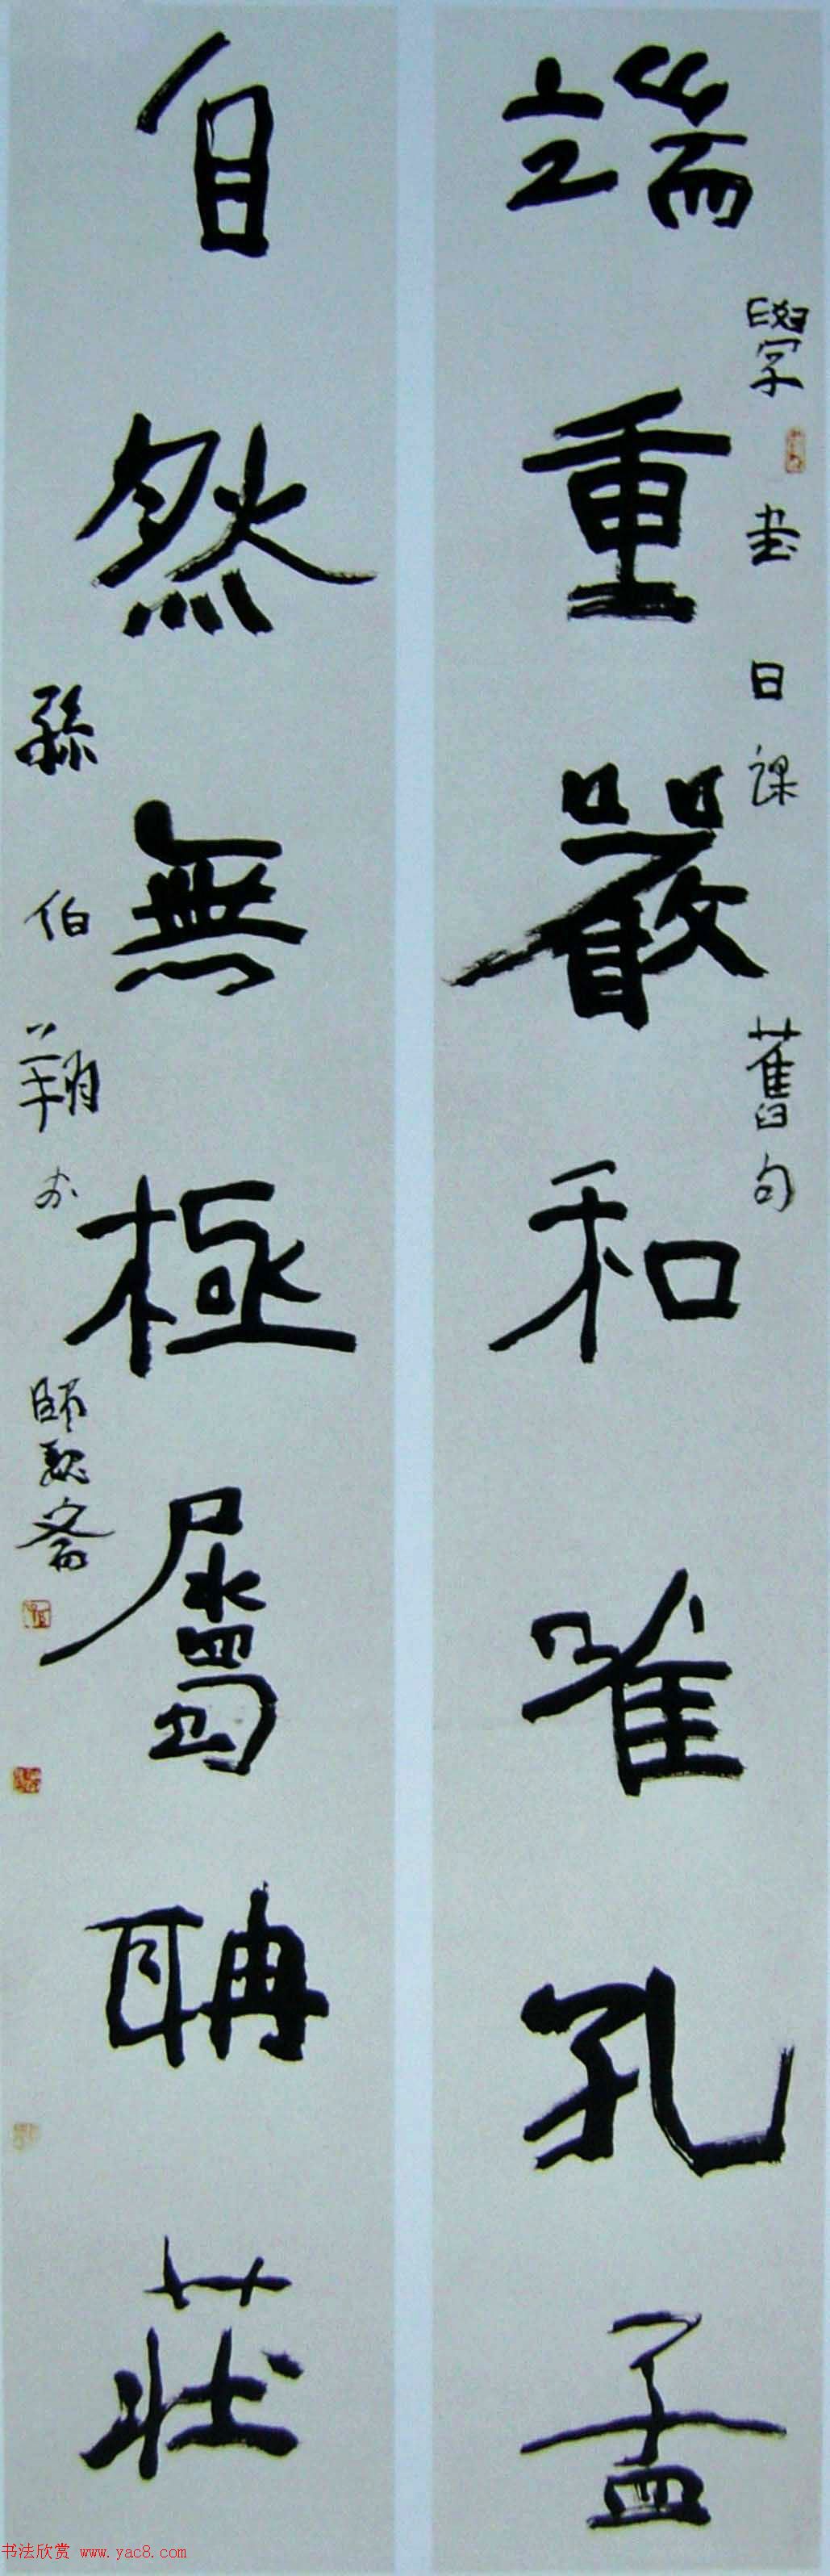 端重嚴和唯孔孟
學書日課
舊句
自然無極屬聃莊
孫伯翔於
師魏齋
书法欣赏 www.yac8.com